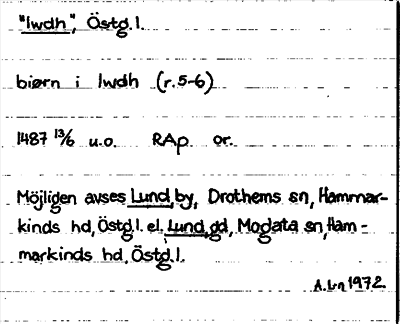 "lwdh", Östg.l.
biørn i lwdh (r.5-6)
1487 13/6 u.o. RAp or.
Möjligen avses Lund, by, Drothems sn, Hammar-
kinds hd, Östg.l. el. Lund, gd, Mogata sn, Ham-
markinds hd, Östg.l.
A.L-n 1972